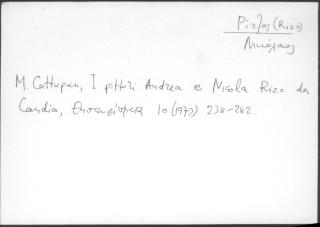 Ρίτζος (Rizo)
Νικόλαος
M. Cattapan, I pittori Andrea e Nicola Rizo da
Candia, Θησαυρίσματα 10 (1973) 238-282.